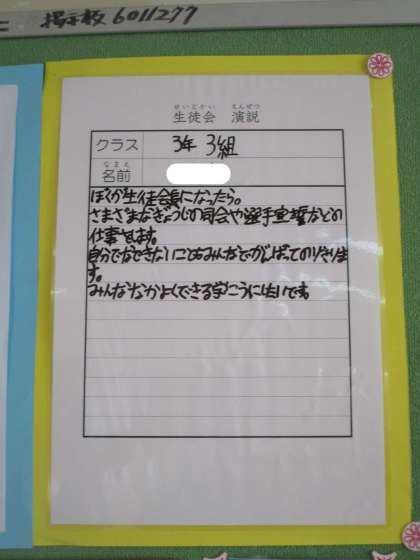 掲示板 6011277
せいとかい えんぜつ
生徒会 演説
クラス 3年 3組
なまえ
名前
ぼくが生徒会長になったら。
さまざまなぎょうじの司会や選手宣誓などの
仕事をします。
自分でなできないこともみんなでがんばってのりきりま
す。
みんななかよくできる学こうにしたいです。